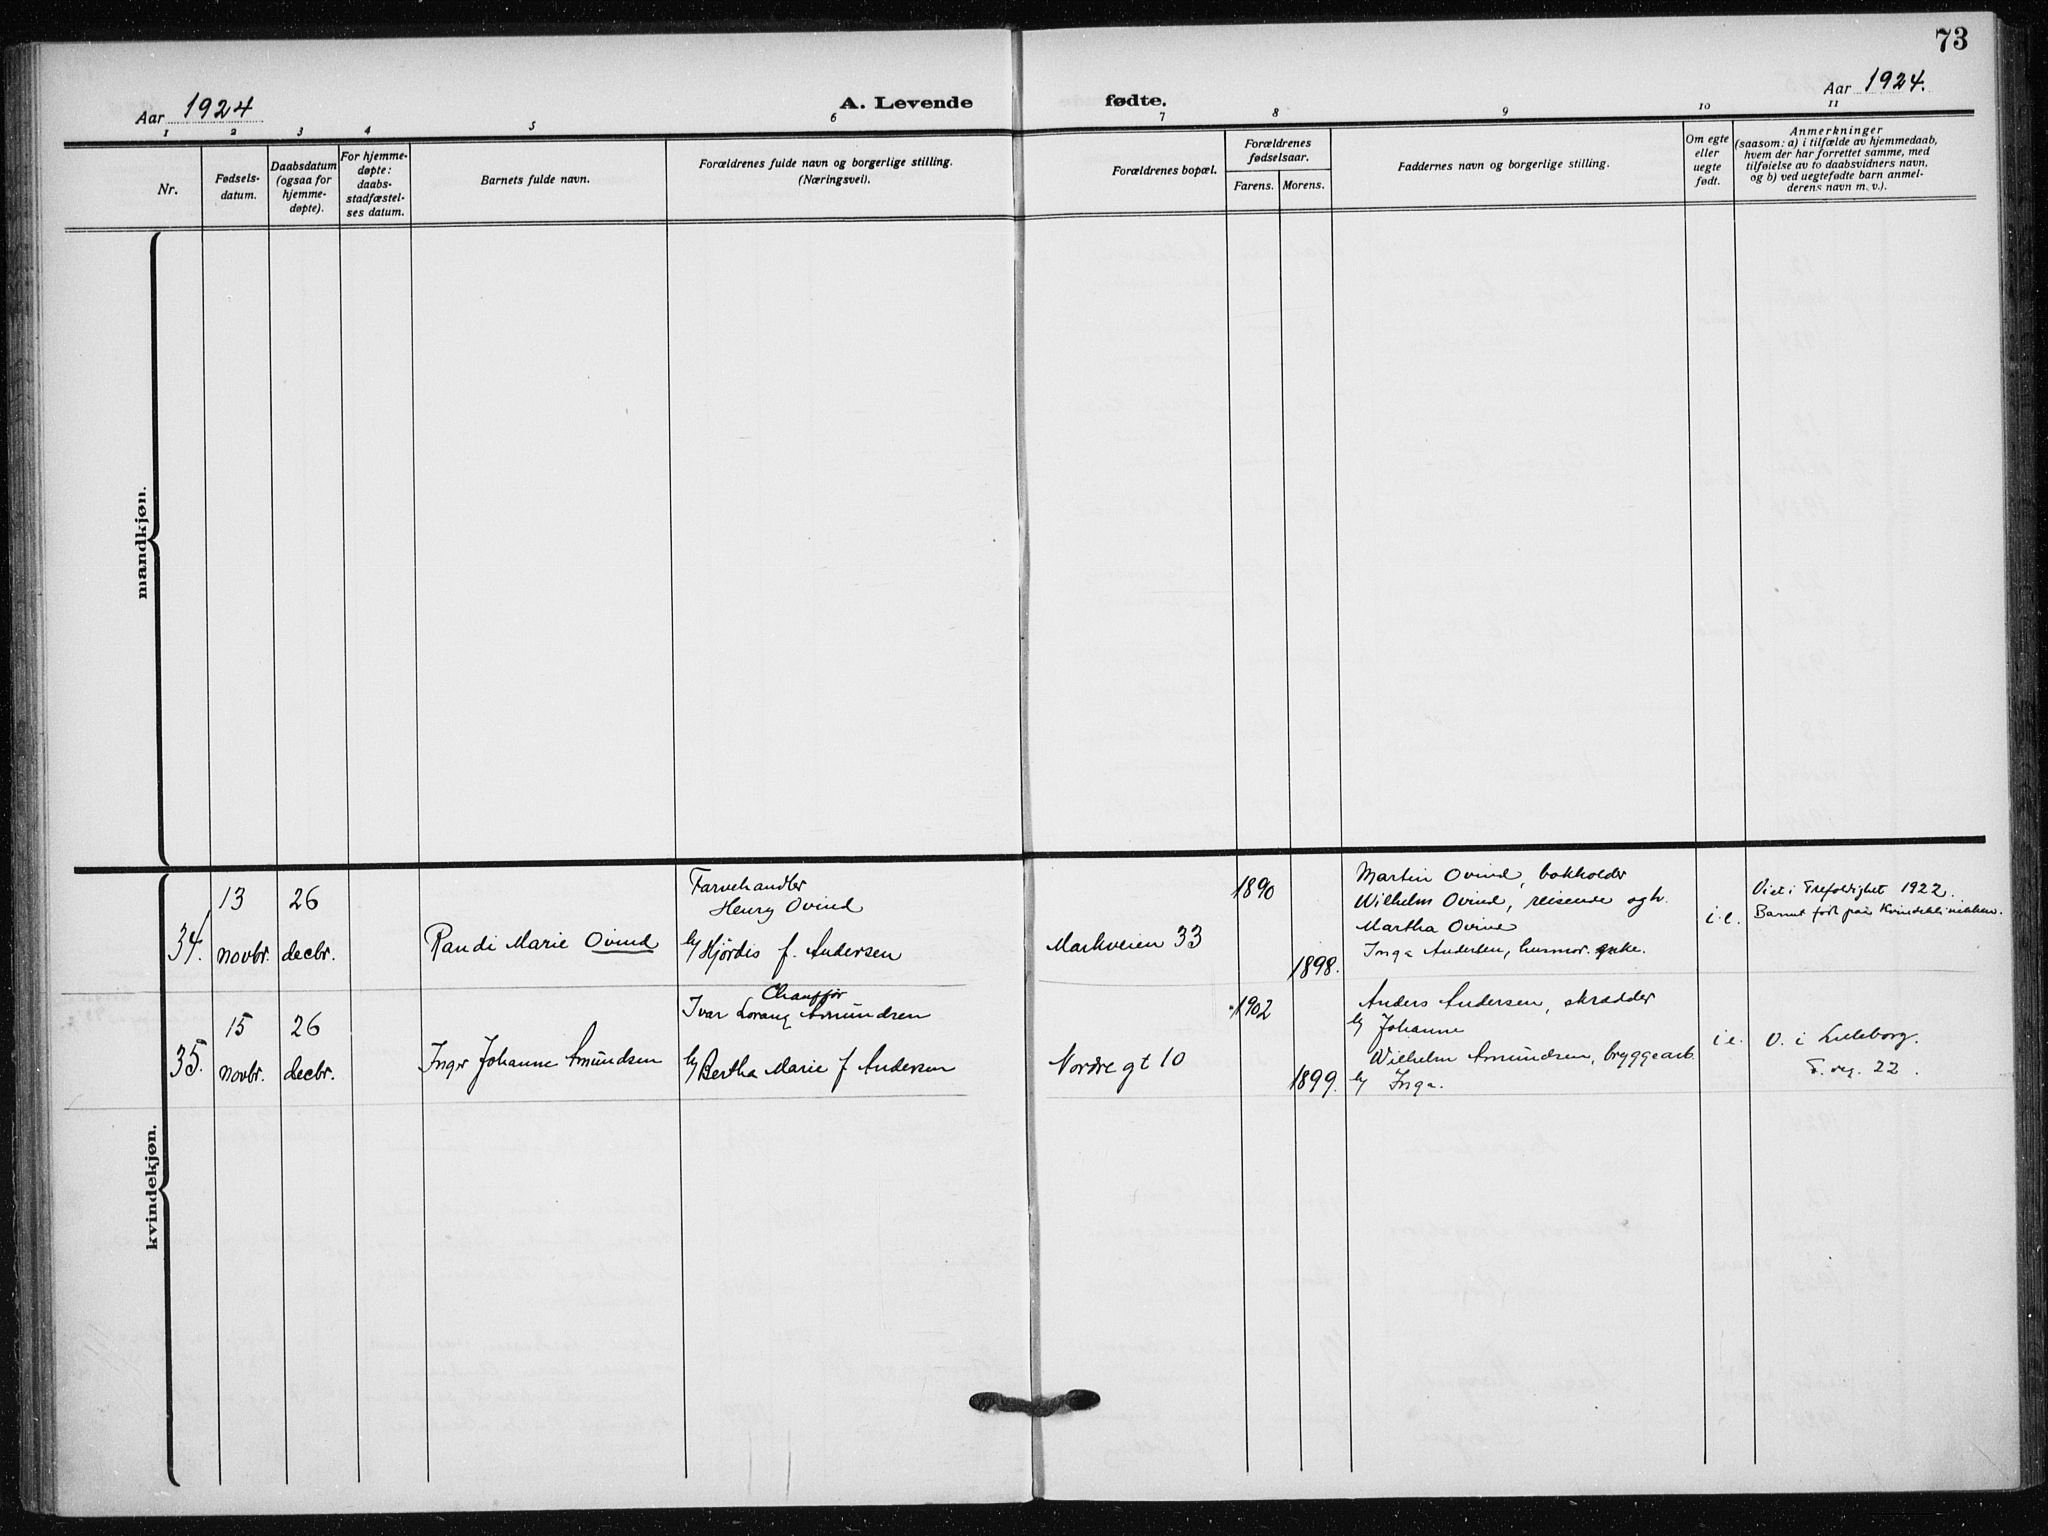 73
Aar 1924
A. Levende
fødte.
Aar 1924.
1 2 3 4 5 6 7 8 9 10 11
Nr.
Fødsels-
datum.
Daabsdatum
(ogsaa for
hjemme-
døpte).
For hjemme-
døpte:
daabs-
stadfæstel-
ses datum.
Barnets fulde navn.
Forældrenes fulde navn og borgerlige stilling.
(Næringsvei).
Forældrenes bopæl.
Forældrenes
fødselsaar.
Farens. Morens.
Faddernes navn og borgerlige stilling.
Om egte
eller
uegte
født.
Anmerkninger
(saasom: a) i tilfælde av hjemmedaab,
hvem der har forrettet samme, med
tilføielse av to daabsvidners navn,
og b) ved uegtefødte barn anmel-
derens navn m. v.).
mandkjøn.
kvindekjøn.
34.
13
novbr.
26
decbr.
Randi Marie Ovind
Farvehandler
Henry Ovind
Hjørdis f. Andersen
Markveien 33
1890
1898.
Martin Ovind, bokholder
Wilhelm Ovind, reisende
Martha Ovind
Inga Andersen, husmor. enke.
i.e.
Viet i Trefoldighet 1922.
Barnet født paa Kvindeklinikken.
35.
15
novbr.
26
decbr.
Inger Johanne Amundsen
Chauffør
Ivar Lorang Amundsen
Bertha Marie f Andersen
Nordre gt 10
1902
1899.
Anders Andersen, skrædder
Johanne
Wilhelm Amundsen, bryggearb.
Inga.
i e.
V. i Lilleborg.
22.